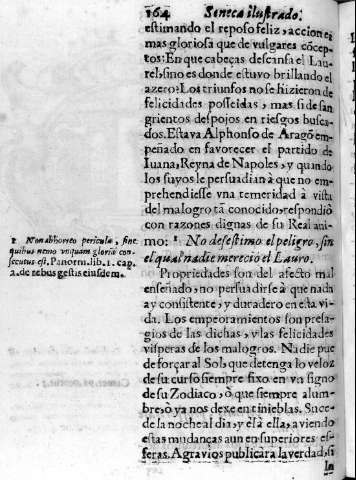 164 Seneca ilustrado.
estimando el reposo feliz, accion es
mas gloriosa que de vulgares cõcep
tos: En que cabeças descansa el Lau
rel, sino es donde estuvo brillando el
azero? Los triunfos no se hizieron de
felicidades posseidas, mas si de san
grientos despojos en riesgos busca
dos. Estava Alphonso de Aragõ em
peñado en favorecer el partido de
Iuana, Reyna de Napoles, y quando
los suyos le persuadian à que no em
prehendiesse vna temeridad à vista
del malogro tã conocido, respondiò
con razones dignas de su Real ani
mo: 1 No desestimo el peligro, sin
el qual nadie mereciò el Lauro.
1 Non abhorreo pericula, sine
quibus nemo vnquam gloriã con
secutus est. Panorm. lib. 1. cap.
2. de rebus gestis eiusdem.
Propriedades son del afecto mal
enseñado, no persuadirse à que nada
ay consistente, y duradero en esta vi
da. Los empeoramientos son presa
gios de las dichas, y las felicidades
visperas de los malogros. Nadie pue
de forçar al Sol, que detenga lo veloz
de su curso siempre fixo en vn signo
de su Zodiaco, ò que siempre alum
bre, ò ya nos dexe en tinieblas. Suce
de la noche al dia, y el à ella, aviendo
estas mudanças aun en superiores es
feras. Agravios publicara la verdad, si
la